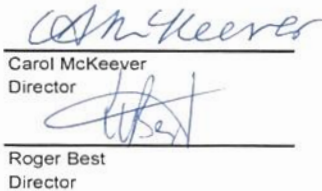 CAMcKeever
Carol McKeever
Director
RBest
Roger Best
Director